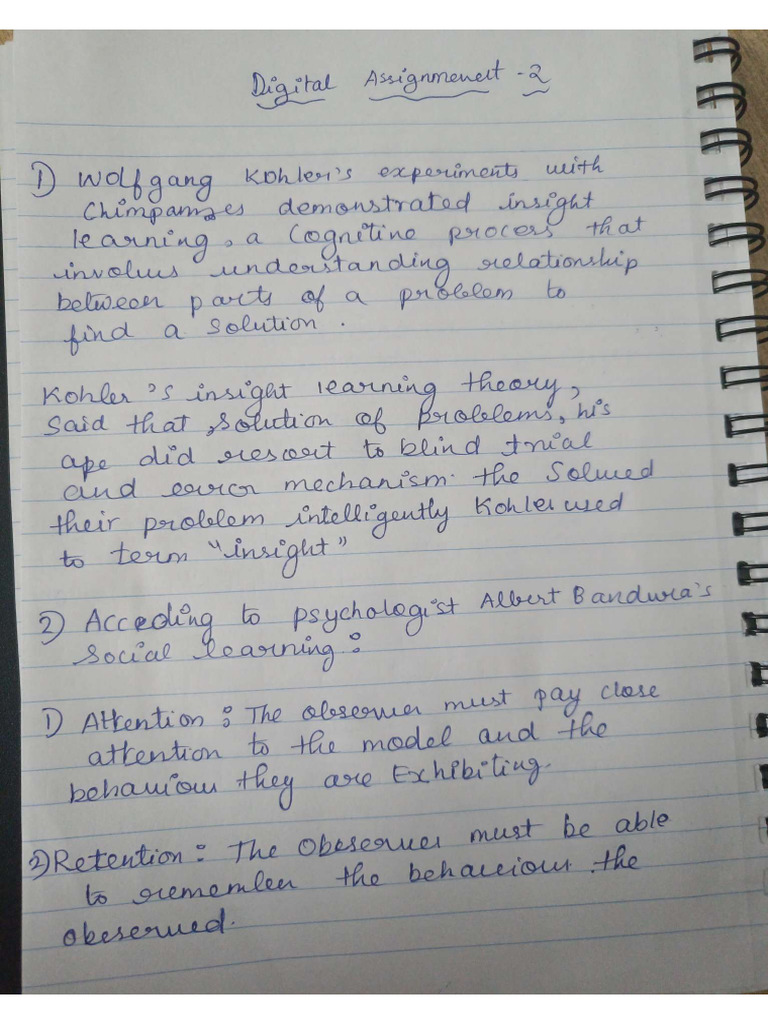 Digital Assignmenet - 2
1) Wolfgang Kohler's experiments with
Chimpamzes demonstrated insight
learning, a Cognitive process that
involves understanding relationship
between parts of a problem to
find a solution.
Kohler's insight learning theory,
Said that, solution of problems, his
ape did resort to blind trial
and error mechanism. the Solved
their problem intelligently Kohler used
to term "insight"
2) Acceding to psychologist Albert Bandura's
social learning:
1) Attention: The observer must pay close
attention to the model and the
behaviour they are Exhibiting.
2) Retention: The Obeserver must be able
to remember the behaveiour the
obeserved.